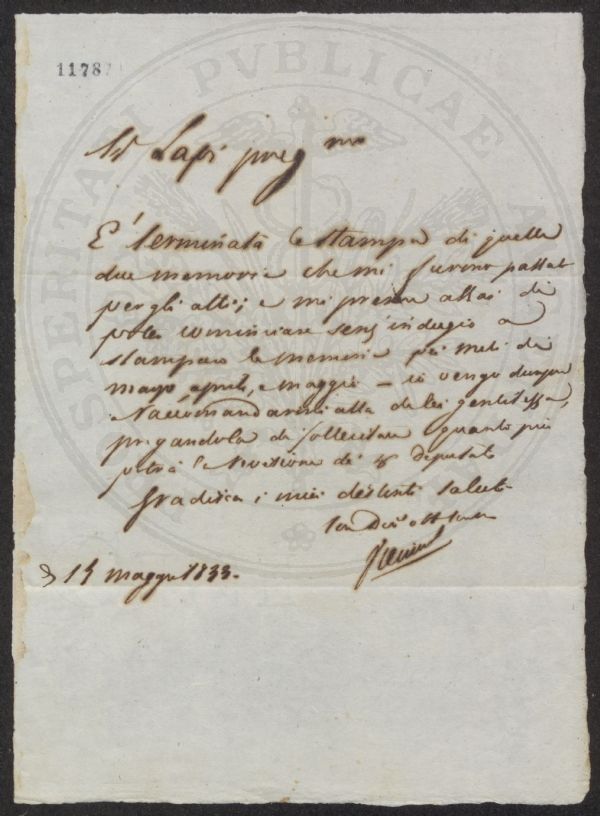 11787
PVBLICAE
Sr Lapi preg mo
E' terminata la stampa di quelle
due memorie che mi furono passate
per gli atti; e mi preme assai di
poter cominciare senz'indugio a
stampare le memorie pei mesi di
marzo, aprile, e maggio — io vengo dunque
a raccomandarmi alla di lei gentilezza,
pregandola di sollecitare quanto più
potrà la revisione dei Deputati
Gradisca i miei distinti saluti
maggio 1833.